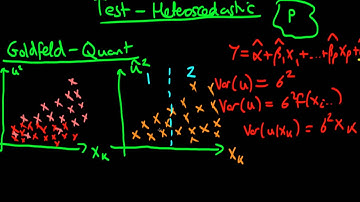 Test - Heteroscedastic
P
Goldfeld-Quant
u²
X_K
û²
1
2
X_K
Y = α̂ + β̂₁X₁ + ... + β̂pXp +
Var(u) = σ²
Var(u) = σ²f(Xᵢ...)
Var(u|X_K) = σ²X_K